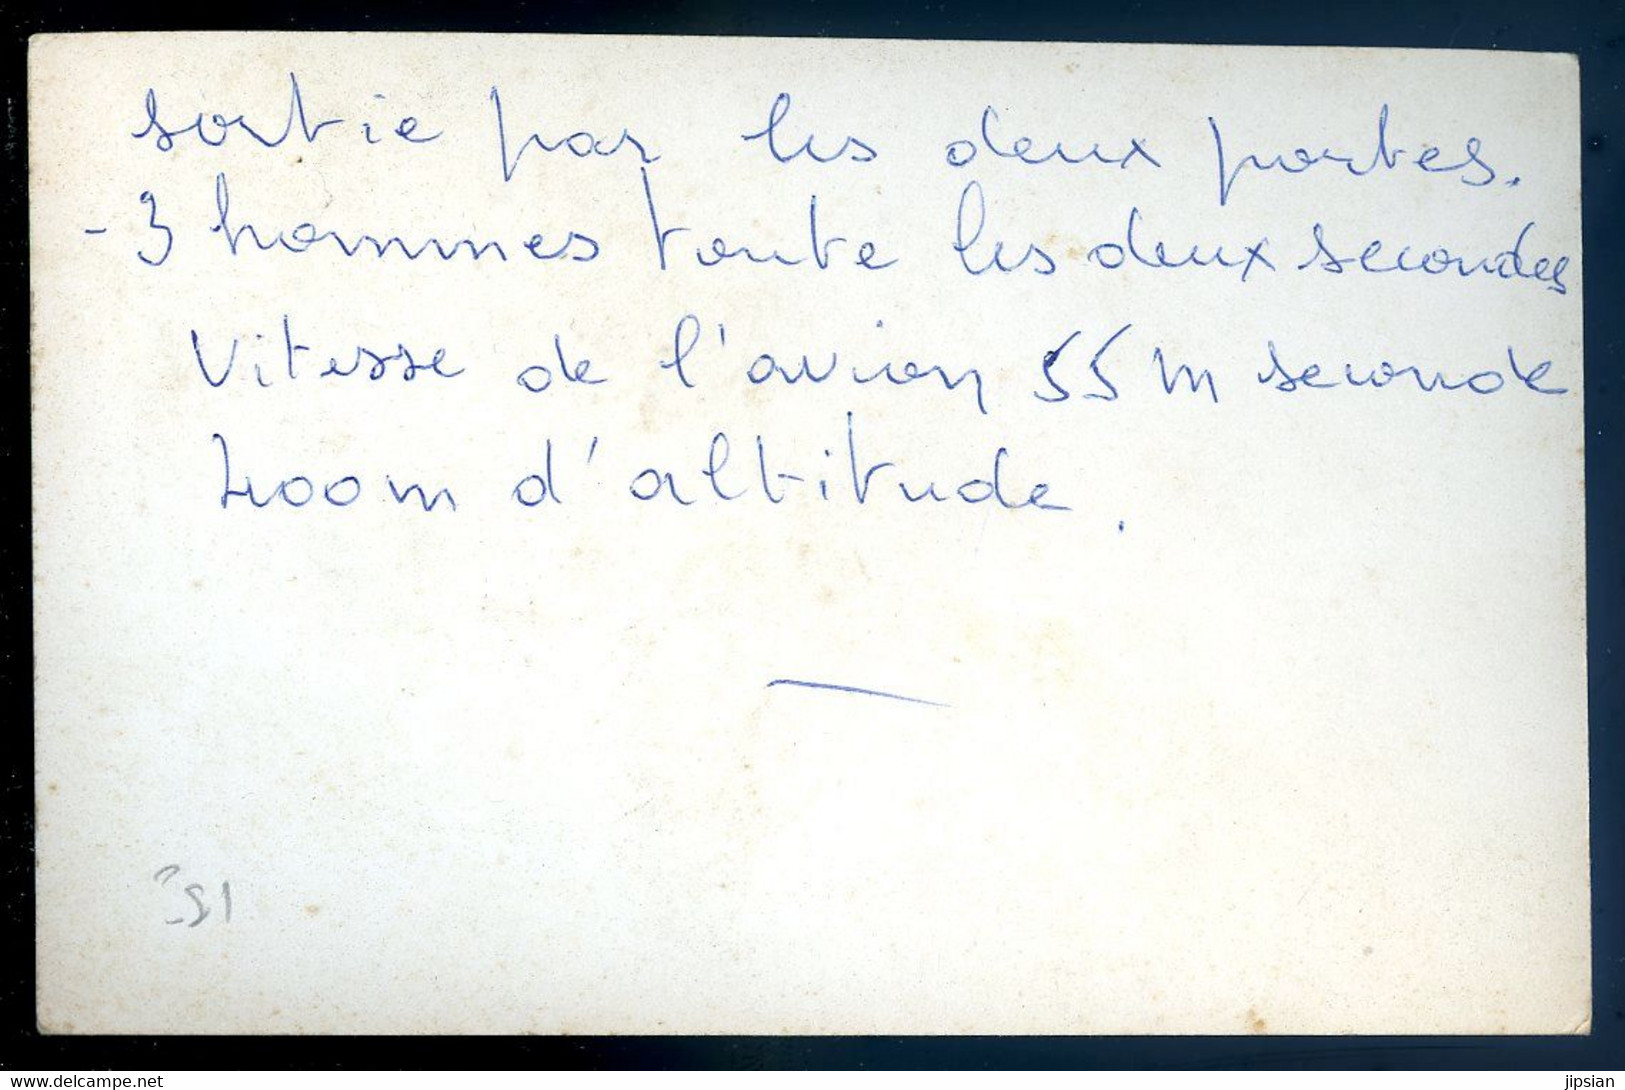 sortie par les deux portes.
- 3 hommes toute les deux secondes
Vitesse de l'avion 55 m seconde
400 m d'altitude.
jipsian
delcampe.net